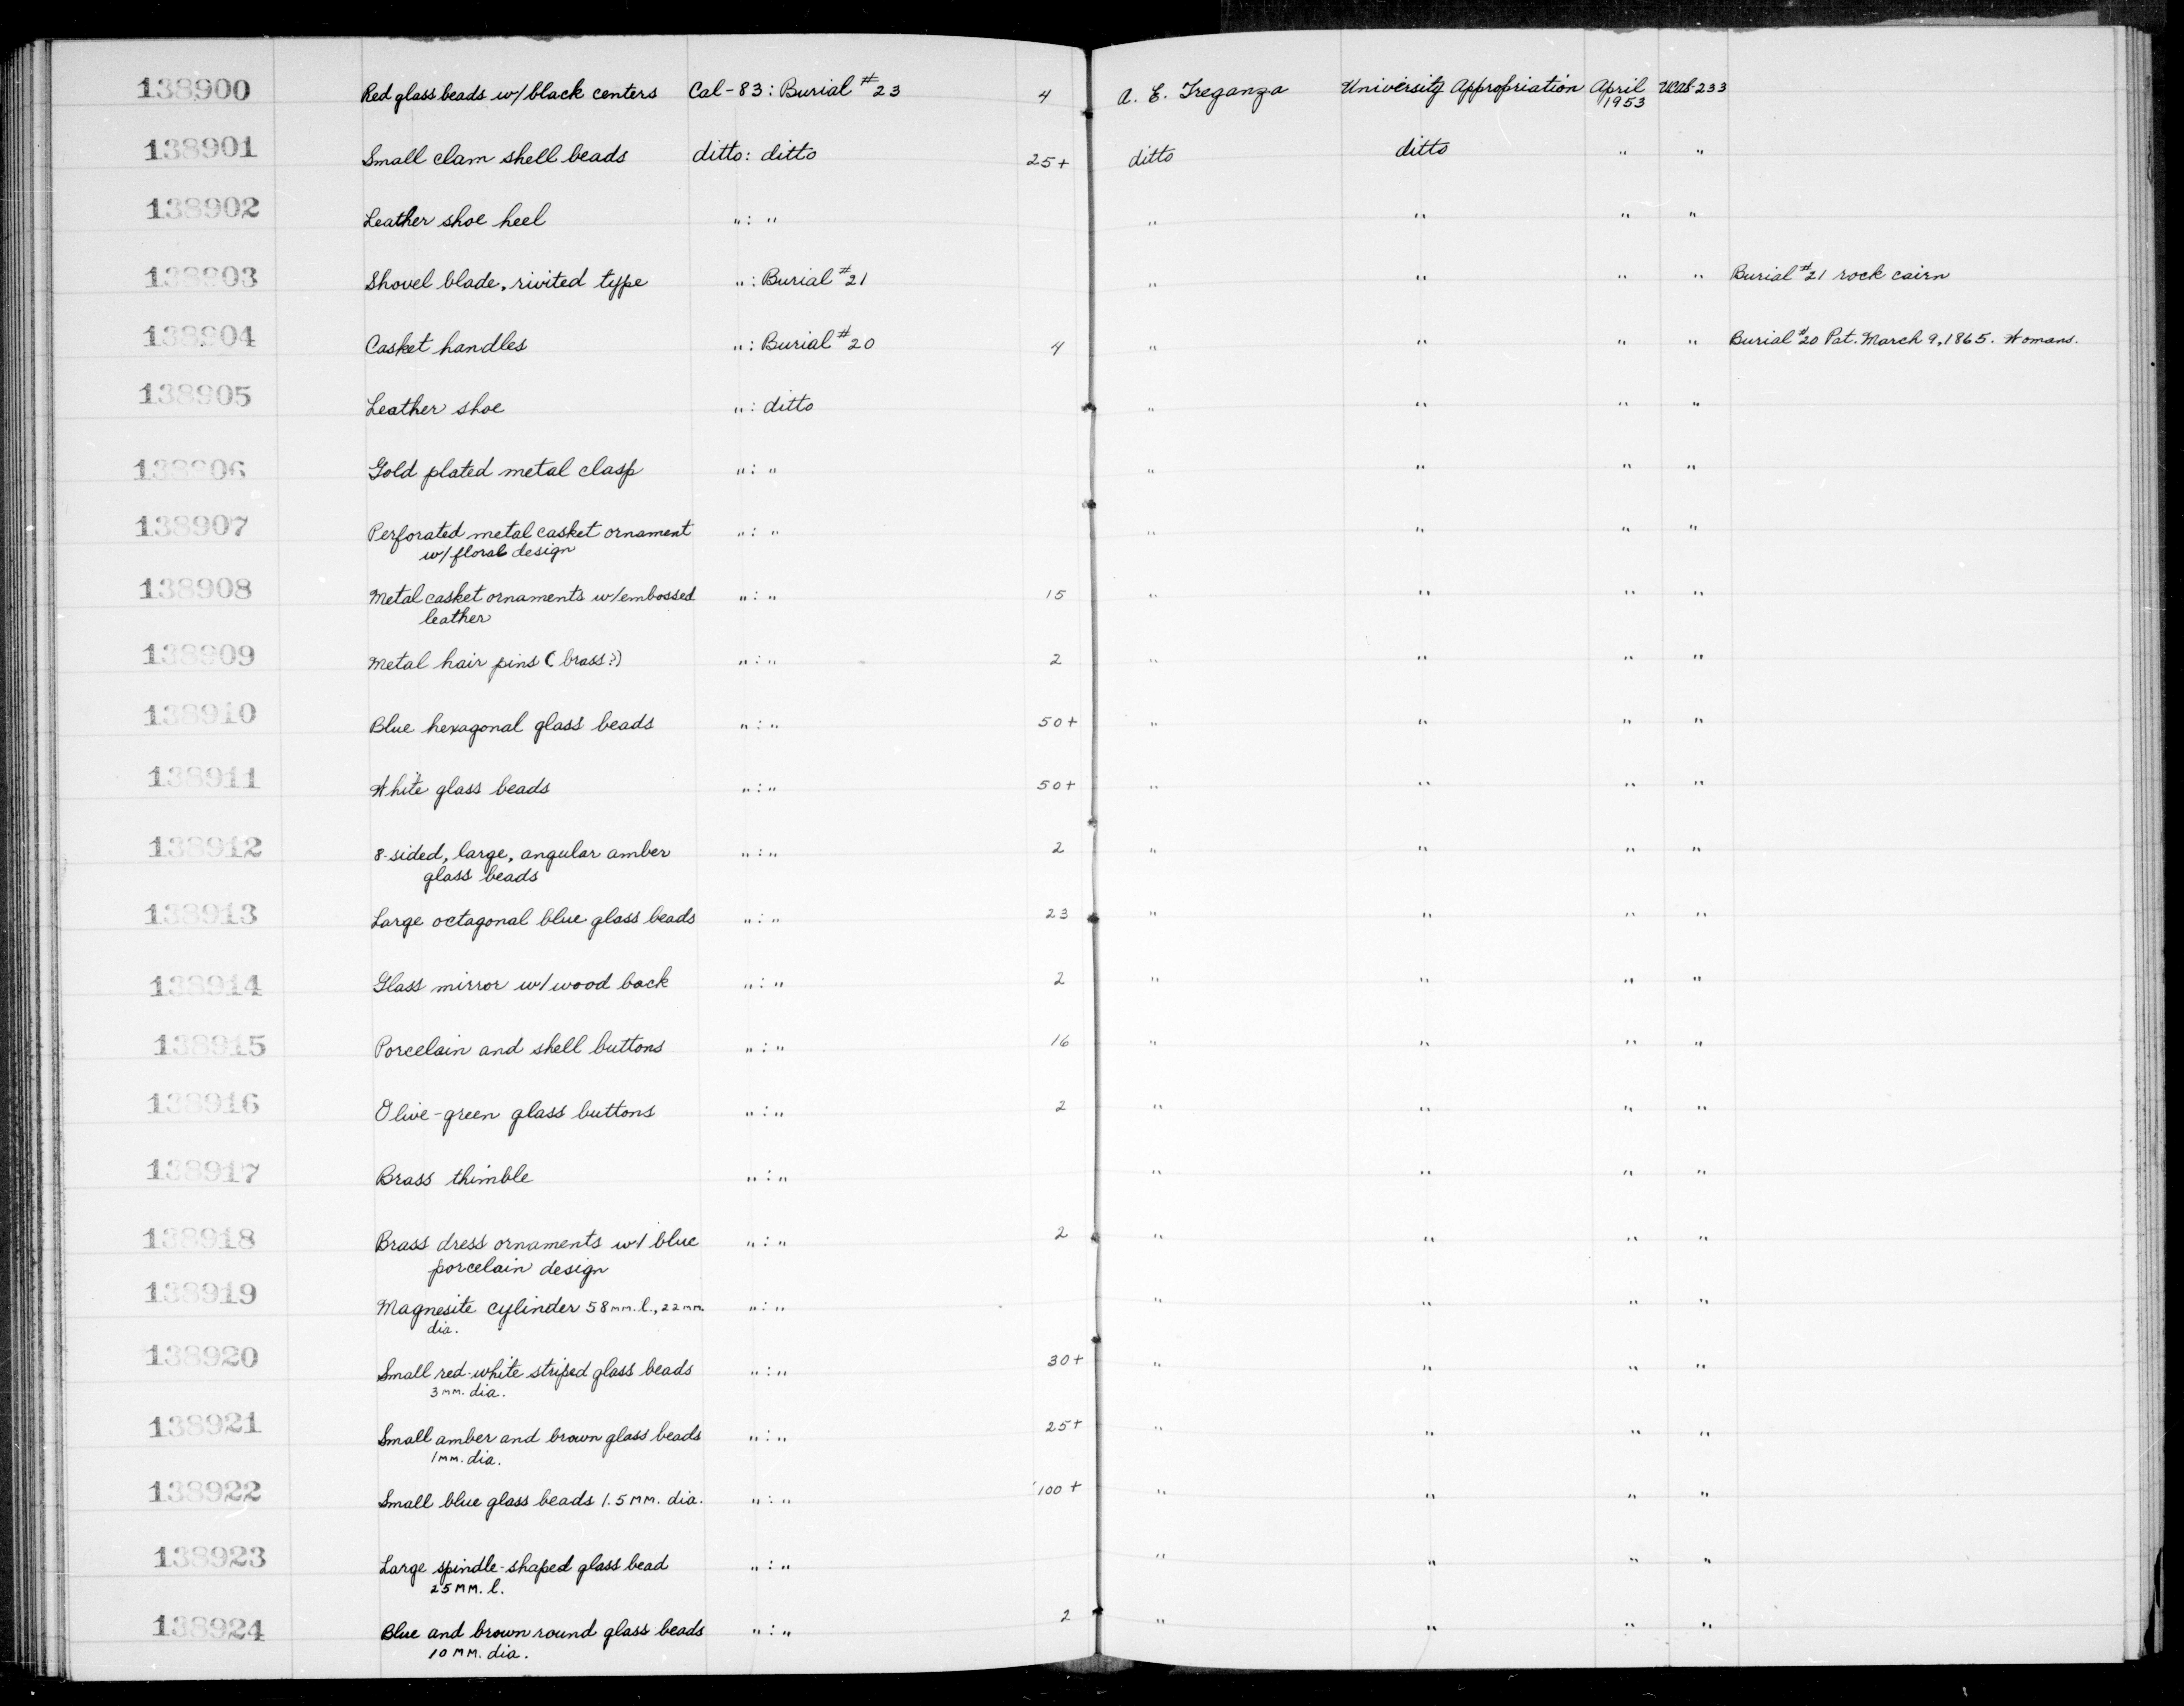 138900 Red glass beads w/ black centers Cal-83: Burial #23 4 A. E. Treganza University Appropriation April 1953 UCAS-233
138901 Small clam shell beads ditto: ditto 25+ ditto ditto " "
138902 Leather shoe heel " : " " " " "
138903 Shovel blade, rivited type " : Burial #21 " " " " Burial #21 rock cairn
138904 Casket handles " : Burial #20 4 " " " " Burial #20 Pat. March 9, 1865. Womans.
138905 Leather shoe " : ditto " " " "
138906 Gold plated metal clasp " : " " " " "
138907 Perforated metal casket ornament " : " " " " "
w/ floral design
138908 Metal casket ornaments w/ embossed " : " 15 " " " "
leather
138909 Metal hair pins (brass?) " : " 2 " " " "
138910 Blue hexagonal glass beads " : " 50+ " " " "
138911 White glass beads " : " 50+ " " " "
138912 8-sided, large, angular amber " : " 2 " " " "
glass beads
138913 Large octagonal blue glass beads " : " 23 " " " "
138914 Glass mirror w/ wood back " : " 2 " " " "
138915 Porcelain and shell buttons " : " 16 " " " "
138916 Olive-green glass buttons " : " 2 " " " "
138917 Brass thimble " : " " " " "
138918 Brass dress ornaments w/ blue " : " 2 " " " "
porcelain design
138919 Magnesite cylinder 58 mm. l., 22 mm. " : " " " " "
dia.
138920 Small red-white striped glass beads " : " 30+ " " " "
3 mm. dia.
138921 Small amber and brown glass beads " : " 25+ " " " "
1 mm. dia.
138922 Small blue glass beads 1.5 mm. dia. " : " 100+ " " " "
138923 Large spindle-shaped glass bead " : " " " " "
25 mm. l.
138924 Blue and brown round glass beads " : " 2 " " " "
10 mm. dia.